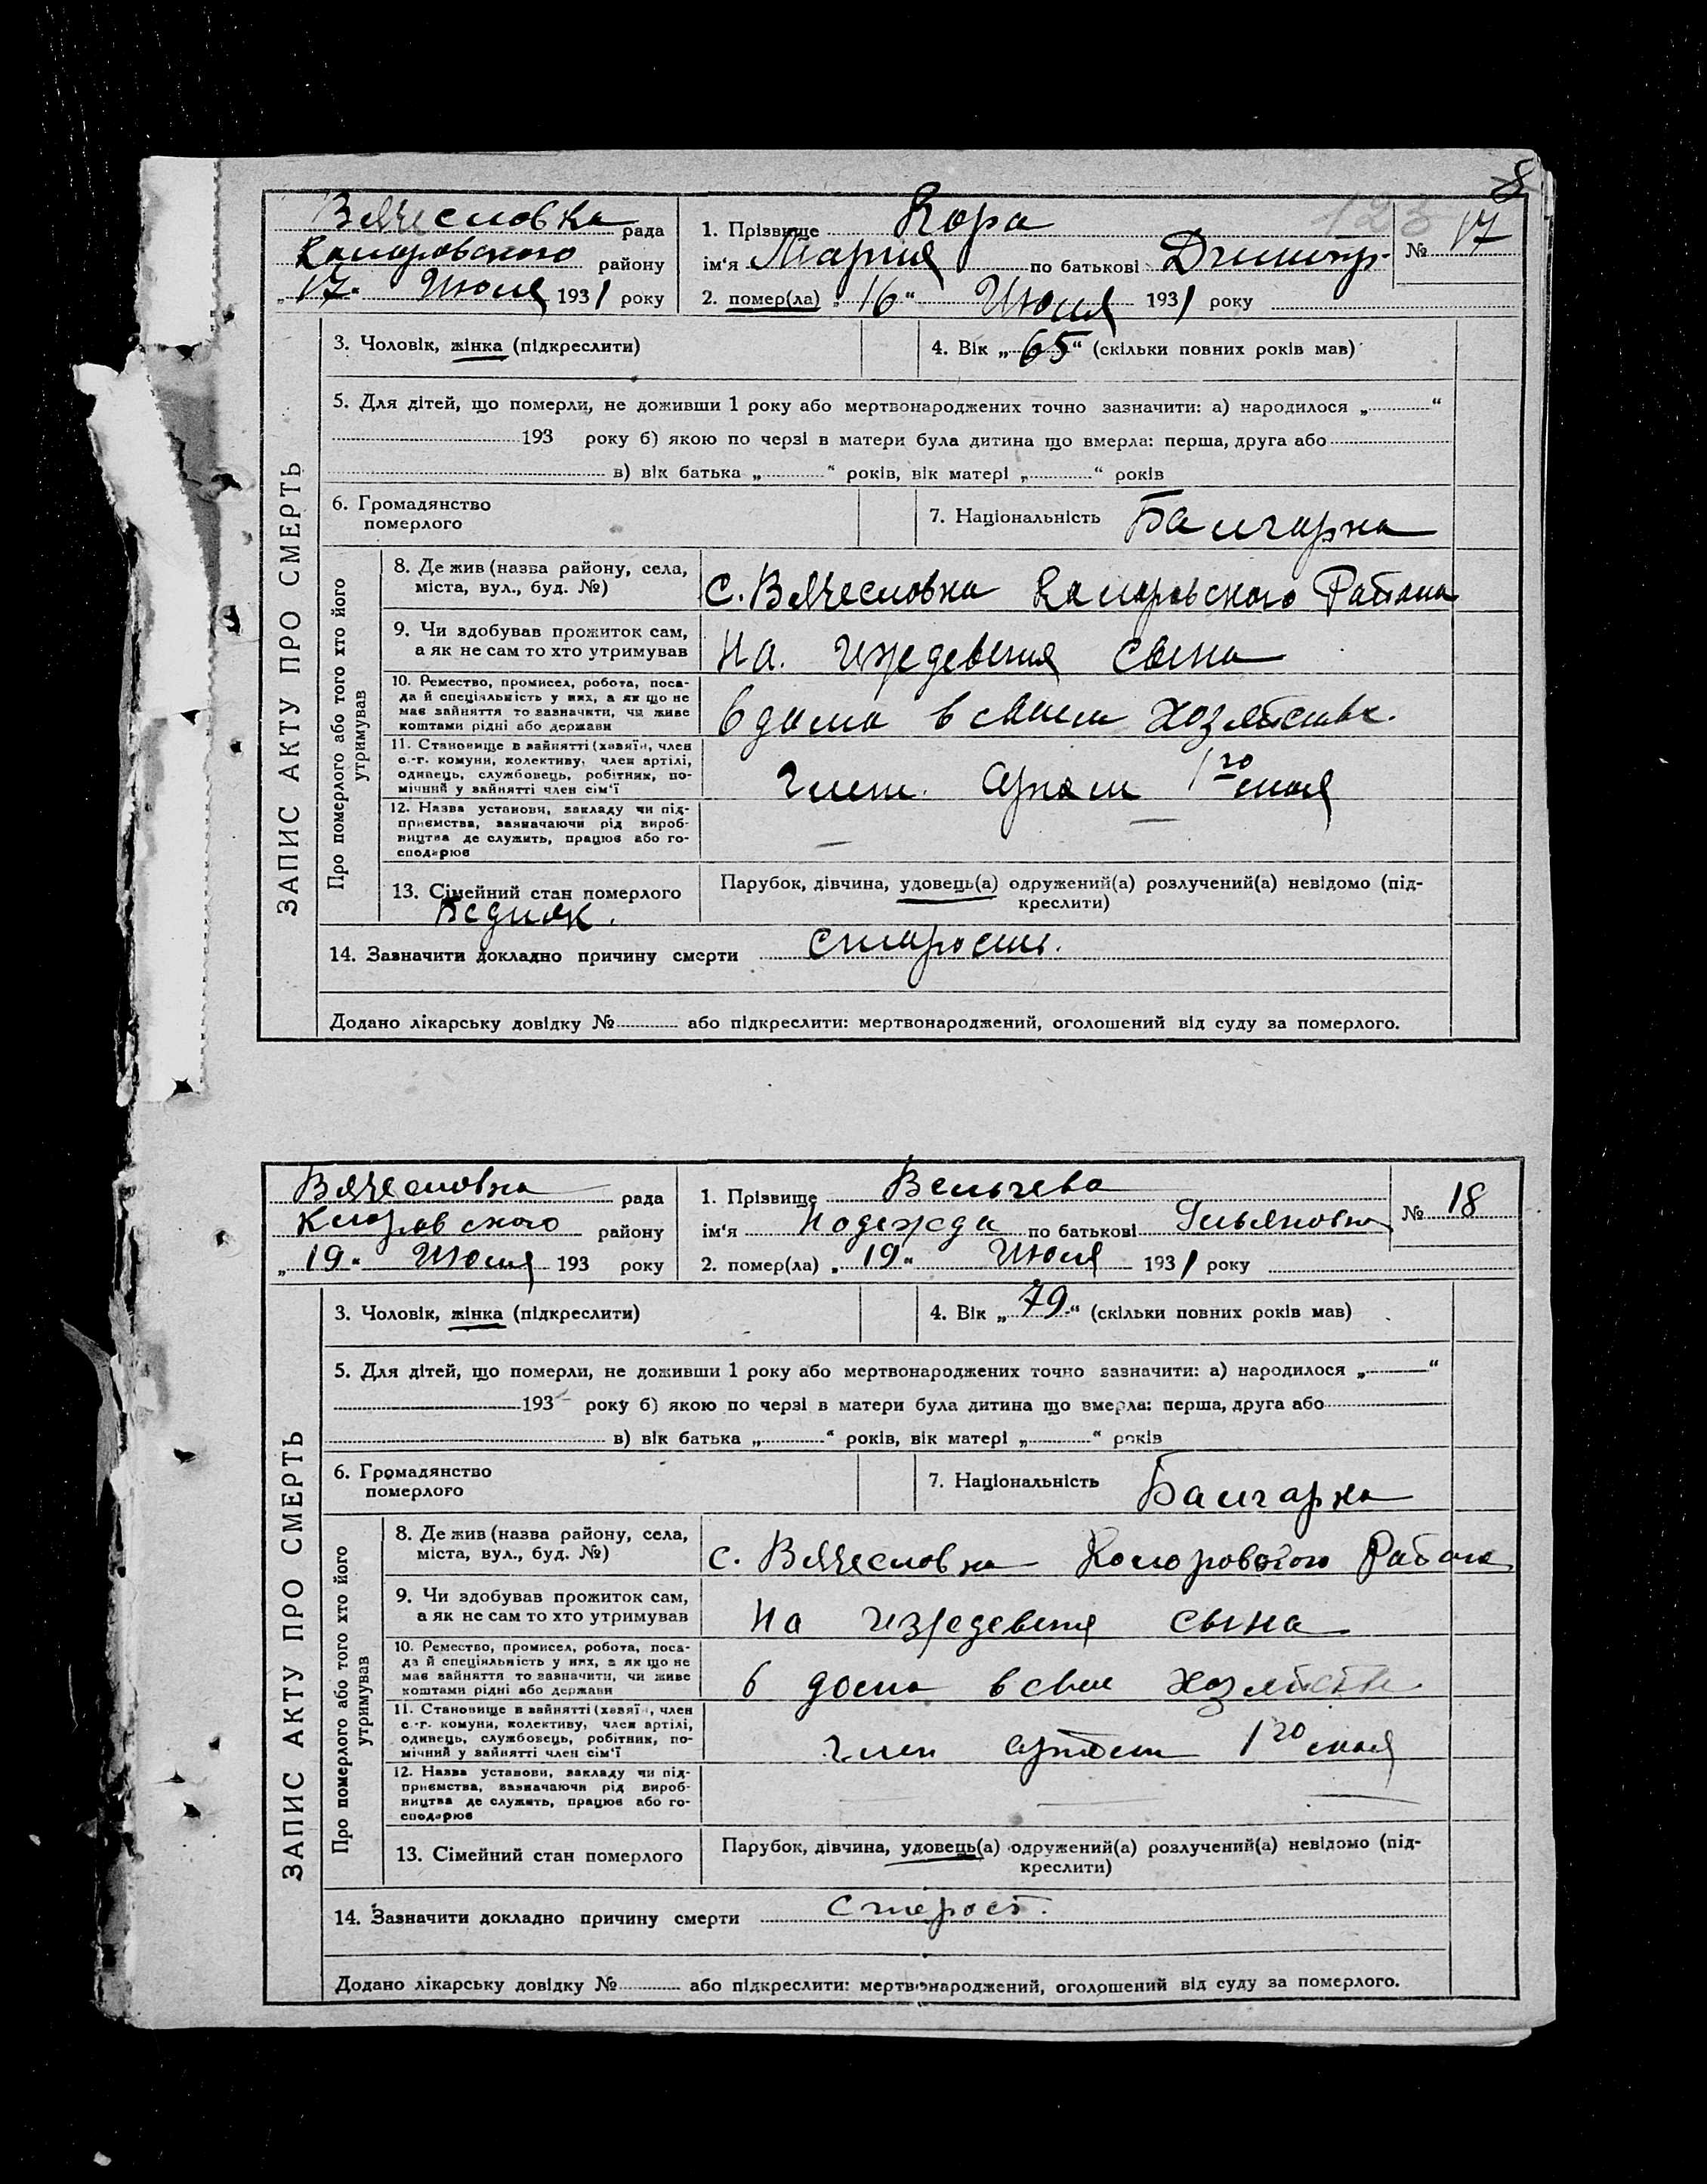 8
123
Вячесловка рада
району
„17“ Июля 1931 року
1. Прізвище Кора
ім‘я Мария по батькові Дмитр.
№ 17
2. помер(ла) „16“ Июля 1931 року
ЗАПИС АКТУ ПРО СМЕРТЬ
3. Чоловік, жінка (підкреслити)
4. Вік „65“ (скільки повних років мав)
5. Для дітей, що померли, не доживши 1 року або мертвонароджених точно зазначити: а) народилося „ “
193 року б) якою по черзі в матери була дитина що вмерла: перша, друга або
в) вік батька „ “ років, вік матері „ “ років
6. Громадянство
померлого
7. Національність Балгарка
Про померлого або того хто його
утримував
8. Де жив (назва району, села,
міста, вул., буд. №)
с. Вячесловка Района
9. Чи здобував прожиток сам,
а як не сам то хто утримував
На иждевения сына
10. Ремество, промисел, робота, поса-
да й спеціяльність у них, а як що не
має зайняття то зазначити, чи живе
коштами рідні або держави
в дома в своем хозяйстве.
11. Становище в зайнятті (хазяїн, член
с.-г. комуни, колективу, член артілі,
одинець, службовець, робітник, по-
мічний у зайнятті член сім‘ї
член 1го
12. Назва установи, закладу чи під-
приємства, зазначаючи рід вироб-
ництва де служить, працює або го-
сподарює
— —
13. Сімейний стан померлого
Бедняк.
Парубок, дівчина, удовець(а) одружений(а) розлучений(а) невідомо (під-
креслити)
14. Зазначити докладно причину смерти старость.
Додано лікарську довідку № або підкреслити: мертвонароджений, оголошений від суду за померлого.
Вячесловка рада
району
„19“ Июля 193 року
1. Прізвище Вельчева
ім‘я Надежда по батькові
№ 18
2. помер(ла) „19“ Июля 1931 року
ЗАПИС АКТУ ПРО СМЕРТЬ
3. Чоловік, жінка (підкреслити)
4. Вік „79“ (скільки повних років мав)
5. Для дітей, що померли, не доживши 1 року або мертвонароджених точно зазначити: а) народилося „ “
193 року б) якою по черзі в матери була дитина що вмерла: перша, друга або
в) вік батька „ “ років, вік матері „ “ років
6. Громадянство
померлого
7. Національність Балгарка
Про померлого або того хто його
утримував
8. Де жив (назва району, села,
міста, вул., буд. №)
с. Вячесловка Района
9. Чи здобував прожиток сам,
а як не сам то хто утримував
На изждевения сына
10. Ремество, промисел, робота, поса-
да й спеціяльність у них, а як що не
має зайняття то зазначити, чи живе
коштами рідні або держави
в дома в свое хозяйстве
11. Становище в зайнятті (хазяїн, член
с.-г. комуни, колективу, член артілі,
одинець, службовець, робітник, по-
мічний у зайнятті член сім‘ї
член 1го
12. Назва установи, закладу чи під-
приємства, зазначаючи рід вироб-
ництва де служить, працює або го-
сподарює
13. Сімейний стан померлого
Парубок, дівчина, удовець(а) одружений(а) розлучений(а) невідомо (під-
креслити)
14. Зазначити докладно причину смерти старост.
Додано лікарську довідку № або підкреслити: мертвонароджений, оголошений від суду за померлого.